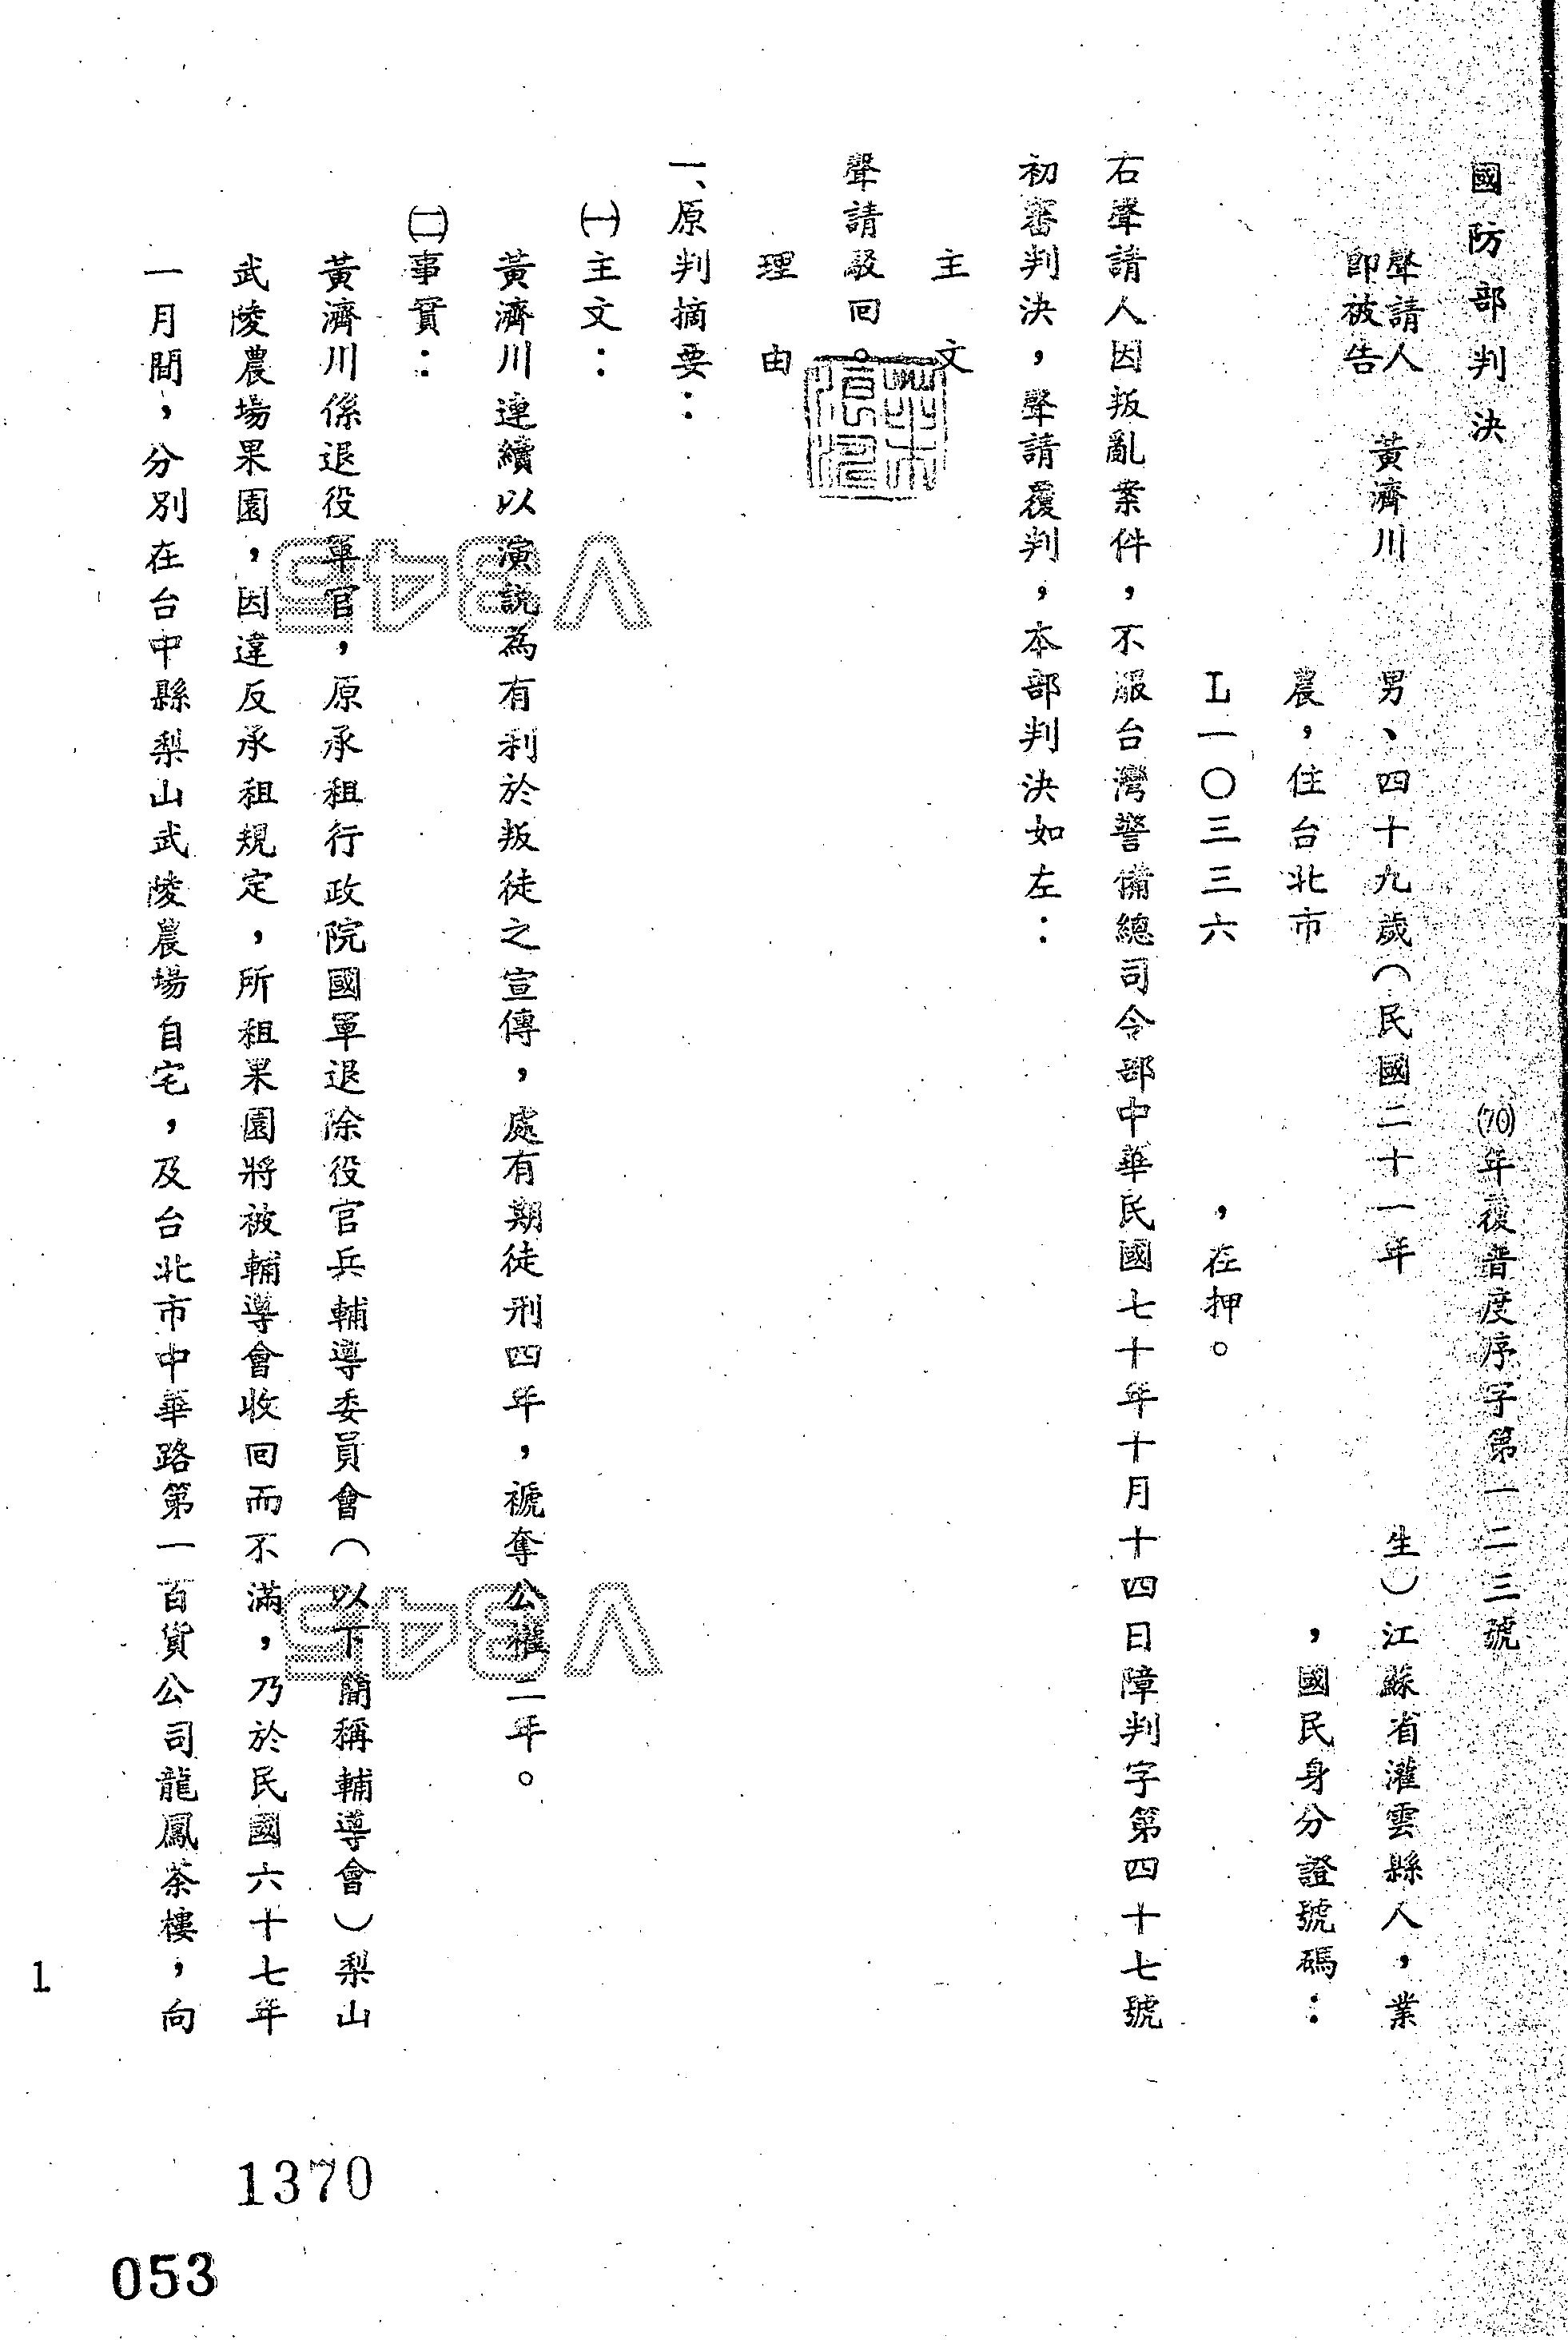 國防部判決　(70)年復普度序字第一二三號
聲請人
即被告　黃濟川　男、四十九歲（民國二十一年　生）江蘇省灌雲縣人，業
農，住台北市　，國民身分證號碼：
L一〇三三六　，在押。
右聲請人因叛亂案件，不服台灣警備總司令部中華民國七十年十月十四日障判字第四十七號
初審判決，聲請覆判，本部判決如左：
主文
聲請駁回。
理由
一、原判摘要：
㈠主文：
黃濟川連續以演說為有利於叛徒之宣傳，處有期徒刑四年，褫奪公權二年。
㈡事實：
黃濟川係退役軍官，原承租行政院國軍退除役官兵輔導委員會（以下簡稱輔導會）梨山
武陵農場果園，因違反承租規定，所租果園將被輔導會收回而不滿，乃於民國六十七年
一月間，分別在台中縣梨山武陵農場自宅，及台北市中華路第一百貨公司龍鳳茶樓，向
1
1370
053
V845
V845